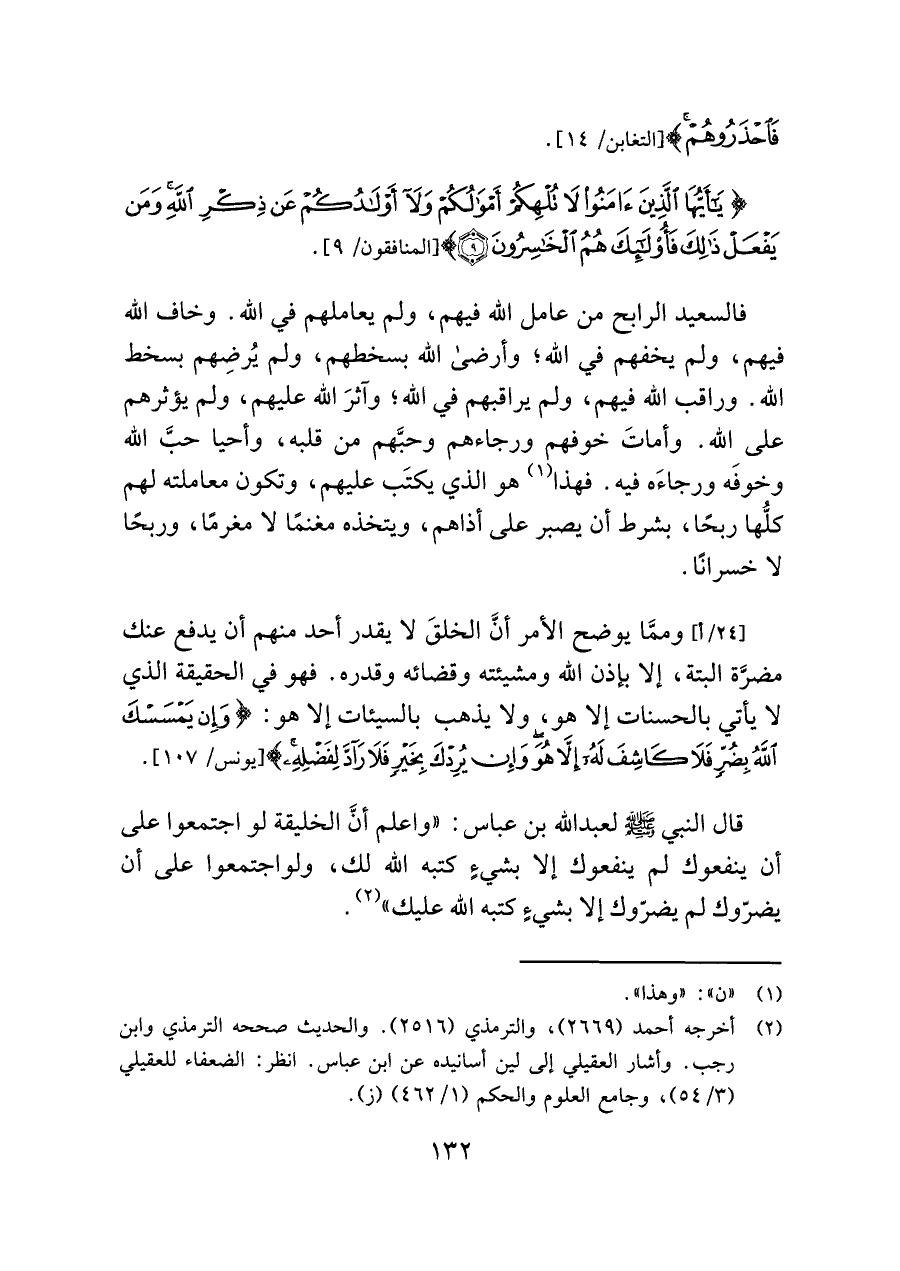 فَٱحۡذَرُوهُمۡۚ﴾ [التغابن/ ١٤].
﴿يَٰٓأَيُّهَا ٱلَّذِينَ ءَامَنُواْ لَا تُلۡهِكُمۡ أَمۡوَٰلُكُمۡ وَلَآ أَوۡلَٰدُكُمۡ عَن ذِكۡرِ ٱللَّهِۚ وَمَن
يَفۡعَلۡ ذَٰلِكَ فَأُوْلَٰٓئِكَ هُمُ ٱلۡخَٰسِرُونَ ٩﴾ [المنافقون/ ٩].
فالسعيد الرابح من عامل الله فيهم، ولم يعاملهم في الله. وخاف الله
فيهم، ولم يخفهم في الله؛ وأرضىٰ الله بسخطهم، ولم يُرضِهم بسخط
الله. وراقب الله فيهم، ولم يراقبهم في الله؛ وآثرَ الله عليهم، ولم يؤثرهم
على الله. وأماتَ خوفهم ورجاءهم وحبَّهم من قلبه، وأحيا حبَّ الله
وخوفَه ورجاءَه فيه. فهذا(١) هو الذي يكتَب عليهم، وتكون معاملته لهم
كلُّها ربحًا، بشرط أن يصبر على أذاهم، ويتخذه مغنمًا لا مغرمًا، وربحًا
لا خسرانًا.
[٢٤/أ] وممَّا يوضح الأمر أنَّ الخلقَ لا يقدر أحد منهم أن يدفع عنك
مضرَّة البتة، إلا بإذن الله ومشيئته وقضائه وقدره. فهو في الحقيقة الذي
لا يأتي بالحسنات إلا هو، ولا يذهب بالسيئات إلا هو: ﴿وَإِن يَمۡسَسۡكَ
ٱللَّهُ بِضُرّٖ فَلَا كَاشِفَ لَهُۥٓ إِلَّا هُوَۖ وَإِن يُرِدۡكَ بِخَيۡرٖ فَلَا رَآدَّ لِفَضۡلِهِۦۚ﴾ [يونس/ ١٠٧].
قال النبي ﷺ لعبدالله بن عباس: «واعلم أنَّ الخليقة لو اجتمعوا على
أن ينفعوك لم ينفعوك إلا بشيءٍ كتبه الله لك، ولواجتمعوا على أن
يضرّوك لم يضرّوك إلا بشيءٍ كتبه الله عليك»(٢).
(١) «ن»: «وهذا».
(٢) أخرجه أحمد (٢٦٦٩)، والترمذي (٢٥١٦). والحديث صححه الترمذي وابن
رجب. وأشار العقيلي إلى لين أسانيده عن ابن عباس. انظر: الضعفاء للعقيلي
(٣/ ٥٤)، وجامع العلوم والحكم (١/ ٤٦٢) (ز).
١٣٢